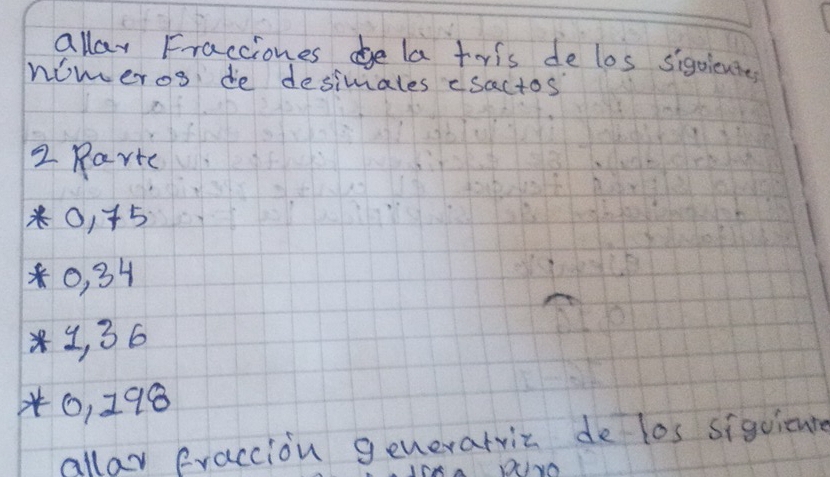 allar Fracciones de la tris de los siguientes
números de desimales esactos
2 Parte
* 0,75
* 0,34
* 1,36
* 0,198
allar fracción generatriz de los siguiente
puro